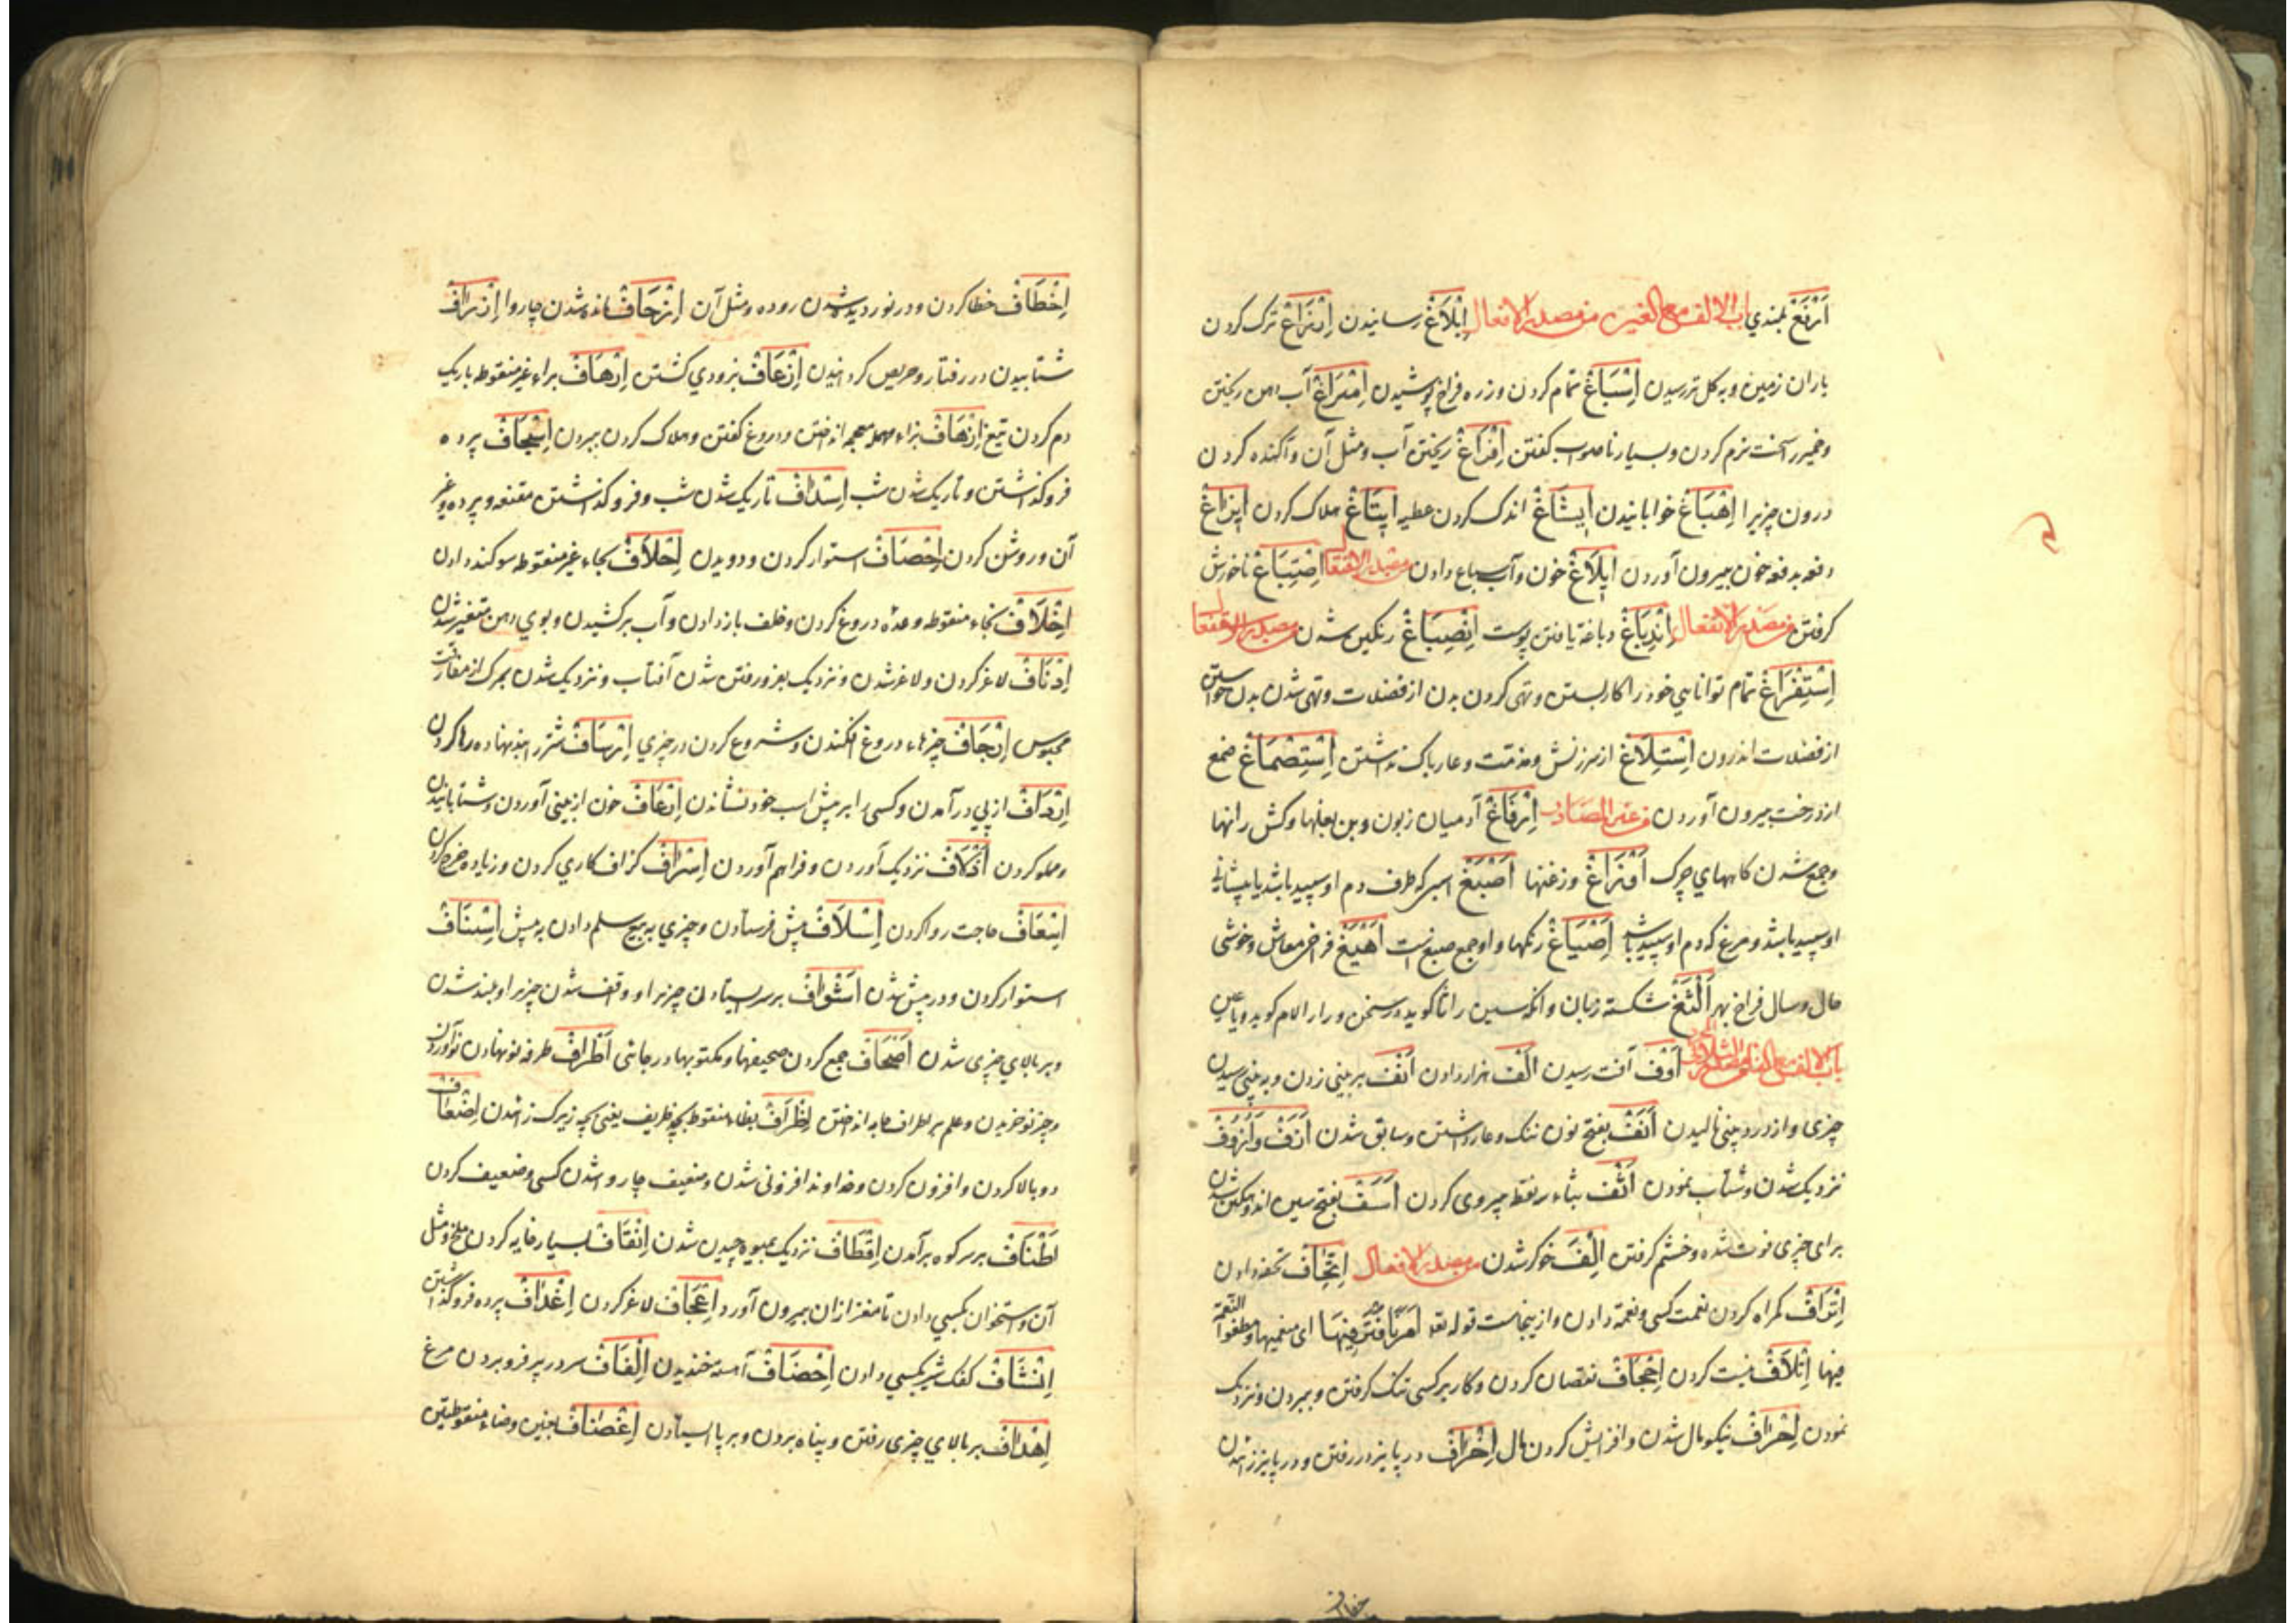 اَرْفَغْ بلندي باب الالف مع الغين من مصدر الافعال اِبْلَاغْ رسانیدن اِدْرَاغْ ترک کردن
باران زمین و به کل تر رسیدن اِسْبَاغْ تمام کردن و زره فراخ پوشیدن اِمْرَاغْ آب دهن ریختن
و خمیر را سخت نرم کردن و بسیار ناصواب کفتن اِفْرَاغْ ریختن آب و مثل آن و آکنده کردن
درون چیزیرا اِهْبَاغْ خوابانیدن اِیْشَاغْ اندک کردن عطیه اِیتَاغْ هلاک کردن اِیزَاغْ
دفعه بدفعه خون بیرون آوردن اِیلَاغْ خون و آب سباع دادن من مصدر الافتعال اِصْتِبَاغْ ناخورش
کرفتن من مصدر الانفعال اِنْدِبَاغْ دباغة یافتن پوست اِنْصِبَاغْ رنکین شدن من مصدر الاستفعال
اِسْتِفْرَاغْ تمام توانایی خود را کار بستن و تهی کردن بدن از فضلات و تهی شدن بدن خواستن
از فضلات اندرون اِسْتِلَاغْ از سرزنش و مذمت و عار باک نداشتن اِسْتِصْمَاغْ صمغ
از درخت بیرون آوردن من غیر المصادر اِرْفَاغْ آدمیان زبون و بن بغلها و کش رانها
و جمع شدن کاههاي چرک اَوْزَاغْ وزغتها اَصْبَغْ اسبی که طرف دم او سپید باشد یا پیشانی
او سپید باشد و مرغ که دم او سپید باشد اَصْبَاغْ رنکها و او جمع صبغ است اَهْیَغْ فراخی معاش و خوشی
حال و سال فراخ بهر اَلْثَغْ شکسته زبان و آنکه سین را ثا کوید در سخن و را را لام کوید و یا غین
باب الالف مع الفاء من الثلاثی المجرد اَوْفْ آفت رسیدن اَلْفْ هزار دادن اَنْفْ بر بینی زدن و به بینی رسیدن
چیزی و از درد بینی نالیدن اَنَفْ بفتح نون ننک و عار داشتن و سابق شدن اَزَفْ وَ اُزُوفْ
نزدیک شدن و شتاب نمودن اَثْفْ بثاء سه نقطه پیروی کردن اَسَفْ بفتح سین اندوهکین شدن
برای چیزی فوت شده و خشم کرفتن اِلْفْ خوکر شدن من مصدر الافعال اِتْحَافْ تحفه دادن
اِتْرَافْ کمراه کردن نعمت کسی و نعمة دادن و ازینجاست قوله تعه اَمَرْنَا مُتْرَفِیهَا ای منعمیها و مطغوا النعمة
فیها اِتْلَافْ نیست کردن اِجْحَافْ نقصان کردن و کار بر کسی تنک کرفتن و ببردن و نزدیک
نمودن اِحْرَافْ نیکو مال شدن و افزایش کردن مال اِخْرَافْ در پاییز در رفتن و در پاییز زائیدن
اِخْطَافْ خطا کردن و در نوردیده شدن روده و مثل آن اِزْحَافْ مانده شدن چاروا اِزْرَافْ
شتابیدن در رفتار و حریص کردانیدن اِزْعَافْ بزودي کشتن اِرْهَافْ براء غیر منقوطه باریک
دم کردن تیغ اِزْهَافْ بزاء معجمه انداختن و دروغ کفتن و هلاک کردن ببردن اِسْجَافْ پرده
فروکذاشتن و تاریک شدن شب اِسْدَافْ تاریک شدن شب و فروکذاشتن مقنعه و پرده و غیر
آن و روشن کردن اِحْصَافْ استوار کردن و دویدن اِحْلَافْ بحاء غیر منقوطه سوکند دادن
اِخْلَافْ بخاء منقوطه وعده دروغ کردن و خلف باز دادن و آب برکشیدن و بوي دهن متغیر شدن
اِدْنَافْ لاغر کردن و لاغر شدن و نزدیک بفرو رفتن شدن آفتاب و نزدیک شدن بمرک از مفارقت
محبوس اِرْجَافْ چیزهاء دروغ افکندن و شروع کردن در چیزي اِرْسَافْ شتر را بند نهاده رها کردن
اِرْدَافْ از پی در آمدن و کسی را بر پس اسب خود نشاندن اِرْعَافْ خون از بینی آوردن و شتابانیدن
و مملو کردن اِزْلَافْ نزدیک آوردن و فراهم آوردن اِسْرَافْ کزاف کاري کردن و زیاده خرج کردن
اِسْعَافْ حاجت روا کردن اِسْلَافْ پیش فرستادن و چیزي به بیع سلم دادن به پیش اِسْنَافْ
استوار کردن و در پیش شدن اِشْرَافْ بر سر ایستادن چیزیرا و واقف شدن چیزیرا و بلند شدن
و بر بالاي چیزی شدن اِصْحَافْ جمع کردن صحیفها و مکتوبها در جائی اِطْرَافْ طرفه نو نهادن نو آوردن
و چیز نو خریدن و علم بر اطراف جامه انداختن اِظْرَافْ بظاء منقوطه بچه ظریف یعنی بچه زیرک زائیدن اِضْعَافْ
دو بالا کردن و افزون کردن و خداوند افزونی شدن و ضعیف چاروا شدن کسی و ضعیف کردن
اِطْنَافْ بر سر کوه برآمدن اِقْطَافْ نزدیک بمیوه چیدن شدن اِنْقَافْ بسیار خایه کردن ملخ و مثل
آن و استخوان بکسي دادن تا مغز از ان بیرون آورد اِعْجَافْ لاغر کردن اِغْدَافْ پرده فروکذاشتن
اِنْشَافْ کفک شیر بکسي دادن اِحْصَافْ آهسته خندیدن اِلْفَافْ سر در پر فرو بردن مرغ
اِهْدَافْ بر بالاي چیزی رفتن و پناه بردن و بر پا ایستادن اِغْضَافْ بغین و ضاء منقوطتین